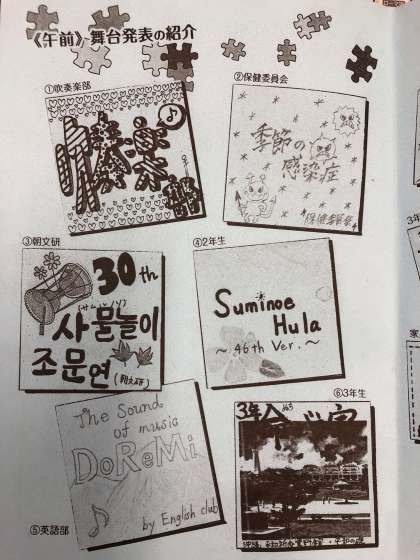 《午前》舞台発表の紹介
①吹奏楽部
吹奏楽部
②保健委員会
季節の
感染症
保健委員会
③朝文研
30th
(サムルノリ)
사물놀이
조문연
(朝文研)
④2年生
Suminoe
Hula
～ 46th Ver. ～
⑤英語部
The Sound
of music
DoReMi
by English club
⑥3年生
3年